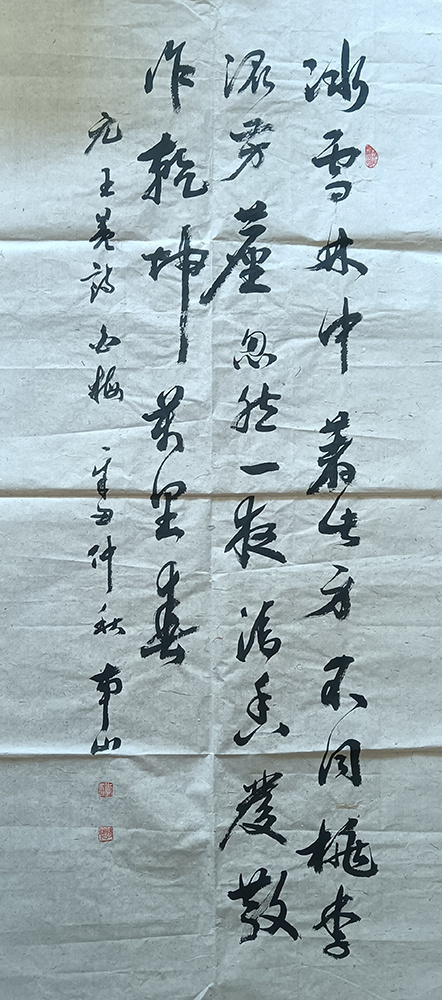 冰雪林中著此身不同桃李
混芳塵忽然一夜清香發散
作乾坤萬里春
元王冕詩白梅 辛丑仲秋